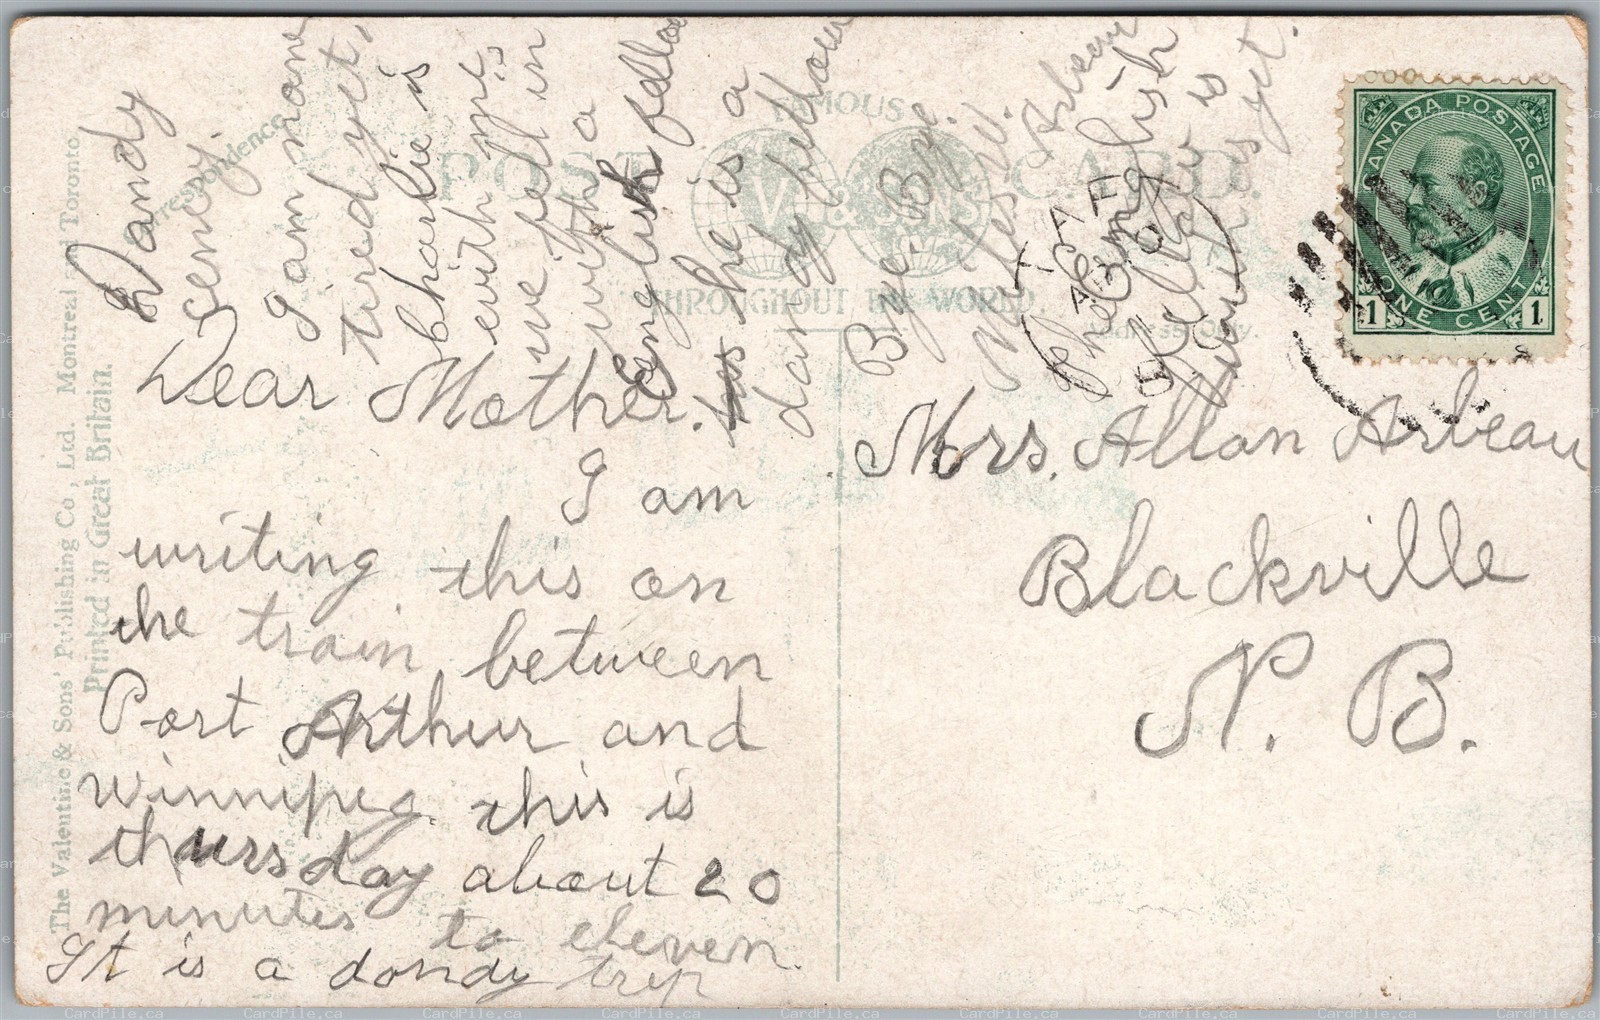 Dear Mother.
I am
writing this on
the train between
Port Arthur and
winnipeg. this is
thursday about 20
minutes to eleven.
It is a dandy trip
Dandy
cenery.
I am none
tired yet.
Charlie is
with me.
we fell in
with a
English fellow
he is a
dandy fellow
Bye Bye.
Miles W. Arbeau
the English
fellow is
yet.
Mrs. Allan Arbeau
Blackville
N. B.
FAMOUS
POST CARD.
V. & SONS
THROUGHOUT THE WORLD.
Correspondence
Address Only
The Valentine & Sons' Publishing Co., Ltd. Montreal and Toronto
Printed in Great Britain.
CANADA POSTAGE
ONE CENT
1 1
CardPile.ca